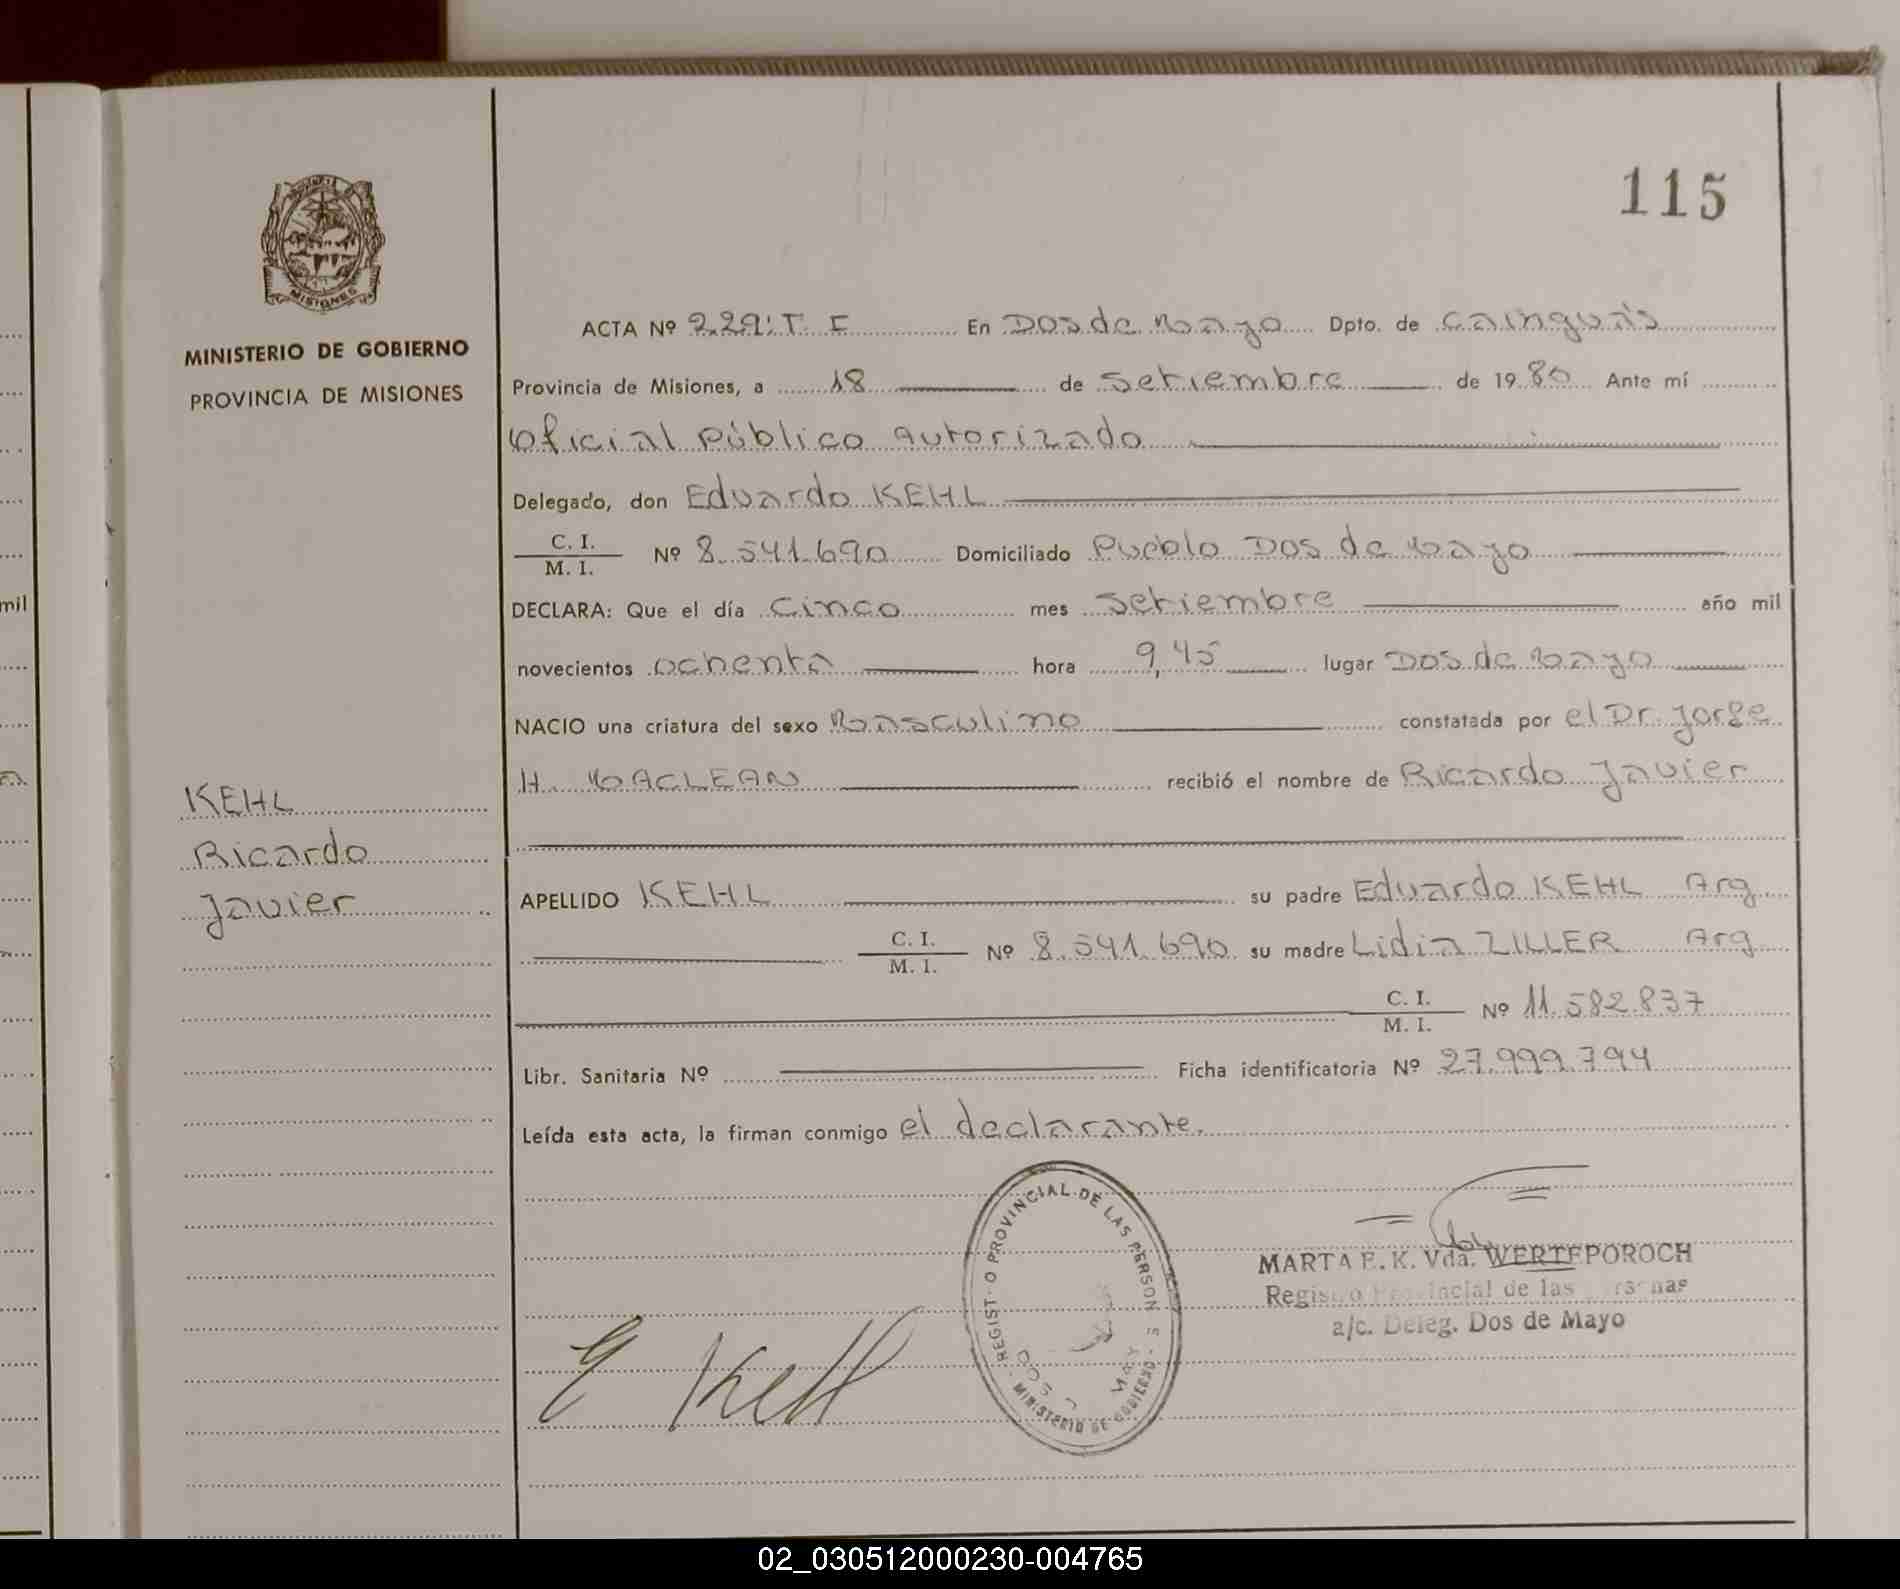 115
MISIONES
MINISTERIO DE GOBIERNO
PROVINCIA DE MISIONES
mil
KEHL
Ricardo
Javier
ACTA Nº 229: T. I En Dos de Mayo Dpto. de Cainguás
Provincia de Misiones, a 18 de Setiembre de 1980 Ante mí
Oficial Público Autorizado
Delegado, don Eduardo KEHL
C. I.
M. I. Nº 8.541.690 Domiciliado Pueblo Dos de Mayo
DECLARA: Que el día Cinco mes Setiembre año mil
novecientos ochenta hora 9,45 lugar Dos de Mayo
NACIO una criatura del sexo Masculino constatada por el Dr. Jorge
H. MACLEAN recibió el nombre de Ricardo Javier
APELLIDO KEHL su padre Eduardo KEHL Arg
C. I.
M. I. Nº 8.541.690 su madre Lidia ZILLER Arg
C. I.
M. I. Nº 11.582.837
Libr. Sanitaria Nº Ficha identificatoria Nº 27.999.794
Leída esta acta, la firman conmigo el declarante.
REGIST O PROVINCIAL DE LAS PERSON S
MINISTERIO DE GOBIERNO
DOS MAY
MARTA E. K. Vda. WERTEPOROCH
Registro Provincial de las Personas
a/c. Deleg. Dos de Mayo
E Kehl
02_030512000230-004765